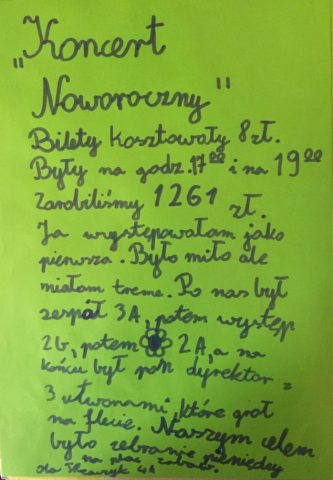 „Koncert
Noworoczny"
Bilety kosztowały 8 zł.
Były na godz. 17⁰⁰ i na 19⁰⁰
Zarobiliśmy 1261 zł.
Ja występowałam jako
pierwsza. Było miło ale
miałam treme. Po nas był
zespół 3A, potem występ
2b, potem 2A, a na
końcu był pan dyrektor z
3 utworami, które grał
na flecie. Naszym celem
było zebranie pieniędzy
na plac zabaw.
4A